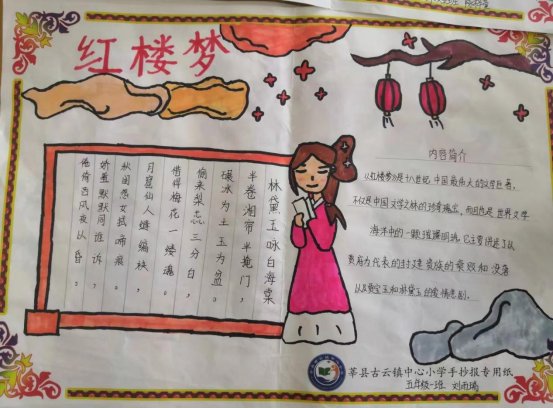 红楼梦
林黛玉咏白海棠
半卷湘帘半掩门，
碾冰为土玉为盆。
偷来梨蕊三分白，
借得梅花一缕魂。
月窟仙人缝缟袂，
秋闺怨女拭啼痕。
娇羞默默同谁诉，
倦倚西风夜以昏。
内容简介
《红楼梦》是十八世纪中国最伟大的文学巨著，
不仅是中国文学之林的珍奇瑰宝，而且也是世界文学
海洋中的一颗璀璨明珠。它主要讲述了以
贾府为代表的封建贵族的衰败和没落
以及贾宝玉和林黛玉的爱情悲剧。
莘县古云镇中心小学手抄报专用纸
五年级一班 刘雨瑞